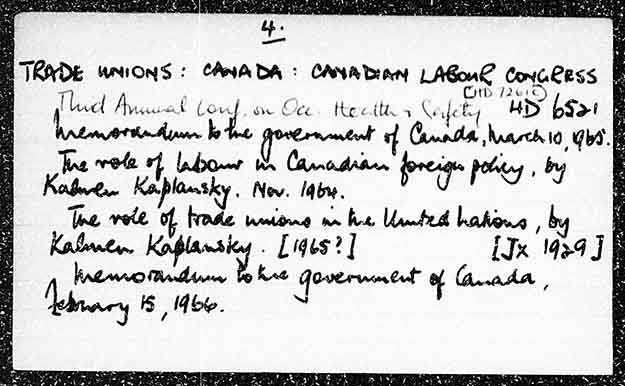 4.
TRADE UNIONS: CANADA: CANADIAN LABOUR CONGRESS
[HD 7261C]
Third Annual Conf. on Occ. Health & Safety HD 6521
Memorandum to the government of Canada, March 10, 1965.
The role of labour in Canadian foreign policy, by
Kalmen Kaplansky. Nov. 1964.
The role of trade unions in the United Nations, by
Kalmen Kaplansky. [1965?] [JX 1929]
Memorandum to the government of Canada,
February 15, 1966.